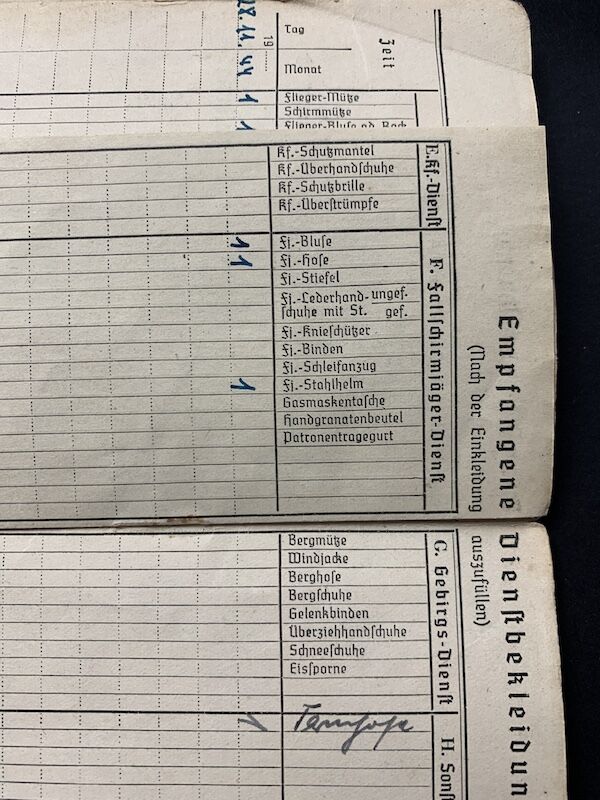 Empfangene Dienstbekleidun
(Nach der Einkleidung auszufüllen)
Zeit
Tag
Monat
19
28. 11. 44
Flieger-Mütze 1
Schirmmütze
Flieger-Bluse od. Rock 1
E. Kf.-Dienst
Kf.-Schutzmantel
Kf.-Überhandschuhe
Kf.-Schutzbrille
Kf.-Überstrümpfe
F. Fallschirmjäger-Dienst
Fj.-Bluse 1
Fj.-Hose 1
Fj.-Stiefel
Fj.-Lederhand- ungef.
schuhe mit St. gef.
Fj.-Knieschützer
Fj.-Binden
Fj.-Schleifanzug
Fj.-Stahlhelm 1
Gasmaskentasche
Handgranatenbeutel
Patronentragegurt
G. Gebirgs-Dienst
Bergmütze
Windjacke
Berghose
Bergschuhe
Gelenkbinden
Überziehhandschuhe
Schneeschuhe
Eissporne
H. Sonst
Tarnhose 1